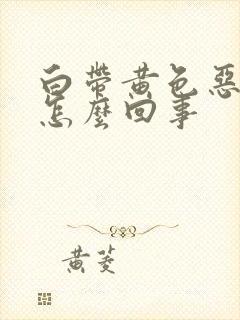 白帶黃色惡
怎麼回事
黃菱